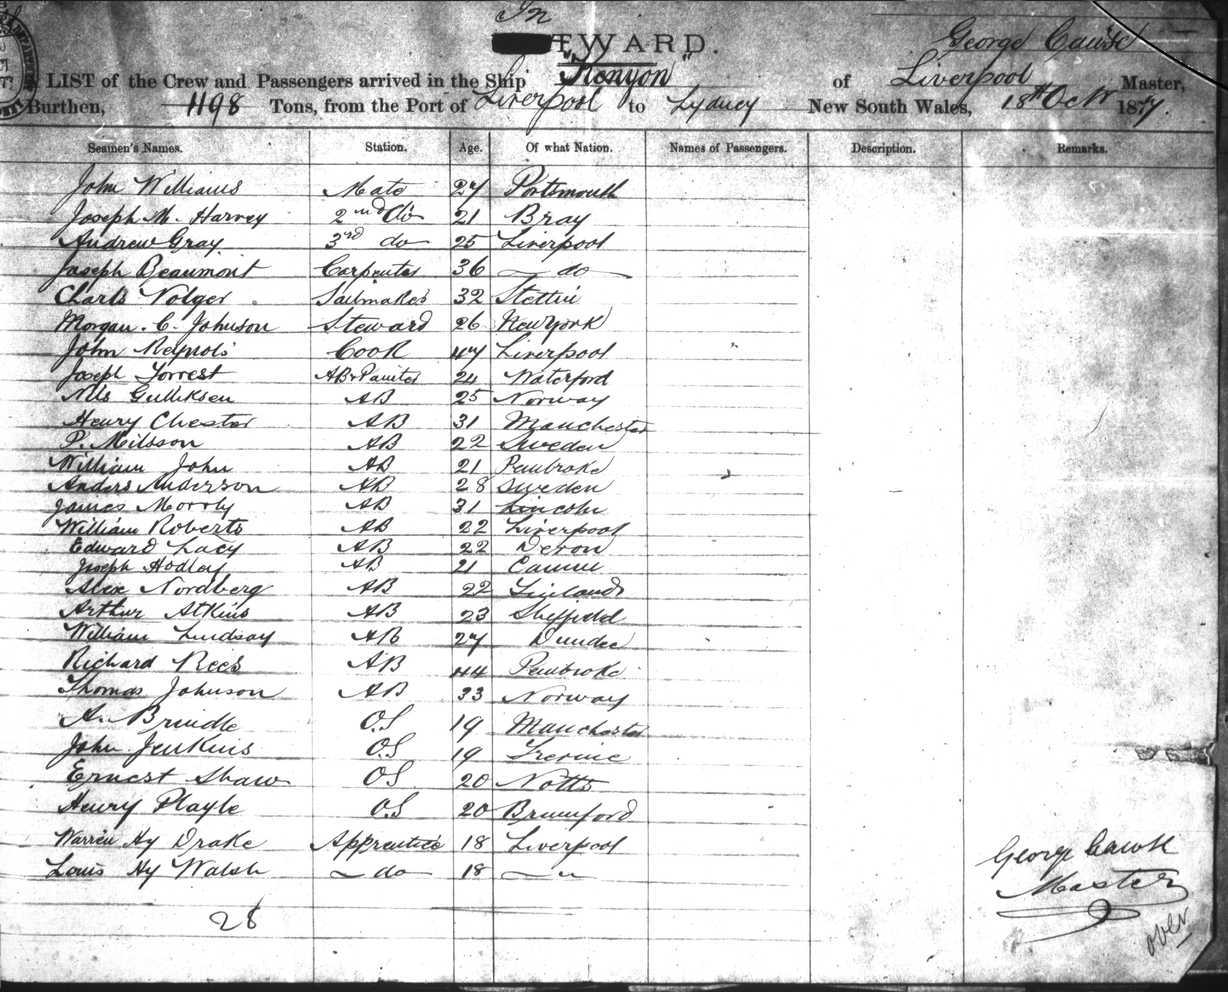 In
WARD.
George Cawse
LIST of the Crew and Passengers arrived in the Ship "Kenyon" of Liverpool Master,
Burthen, 1198 Tons, from the Port of Liverpool to Sydney New South Wales, 18th Octr 1877.
Seamen's Names. Station. Age. Of what Nation. Names of Passengers. Description. Remarks.
John Williams Mate 27 Portsmouth
Joseph M. Harvey 2nd do 21 Bray
Andrew Gray 3rd do 25 Liverpool
Joseph Beaumont Carpenter 36 do
Charls Volger Sailmaker 32 Stettin
Morgan. C. Johnson Steward 26 New York
John Reynols Cook 47 Liverpool
Joseph Forrest AB & Painter 24 Waterford
Nils Gulliksen AB 25 Norway
Henry Chester AB 31 Manchester
P. Neilsson AB 22 Sweden
William John AB 21 Pembroke
Anders Anderson AB 28 Sweden
James Morrly AB 31 Lincoln
William Roberts AB 22 Liverpool
Edward Lacy AB 22 Devon
Joseph Hodley AB 21
Alex Nordberg AB 22 Finland
Arthur Atkins AB 23 Sheffield
William Lindsay AB 27 Dundee
Richard Rees AB 44 Pembroke
Thomas Johnson AB 33 Norway
A. Brindle O.S 19 Manchester
John Jenkins O.S 19
Ernest Shaw O.S 20 Notts
Henry Playle O.S 20
Warren Hy Drake Apprentice 18 Liverpool
Louis Hy Walsh do 18 "
28
George Cawse
Master
over